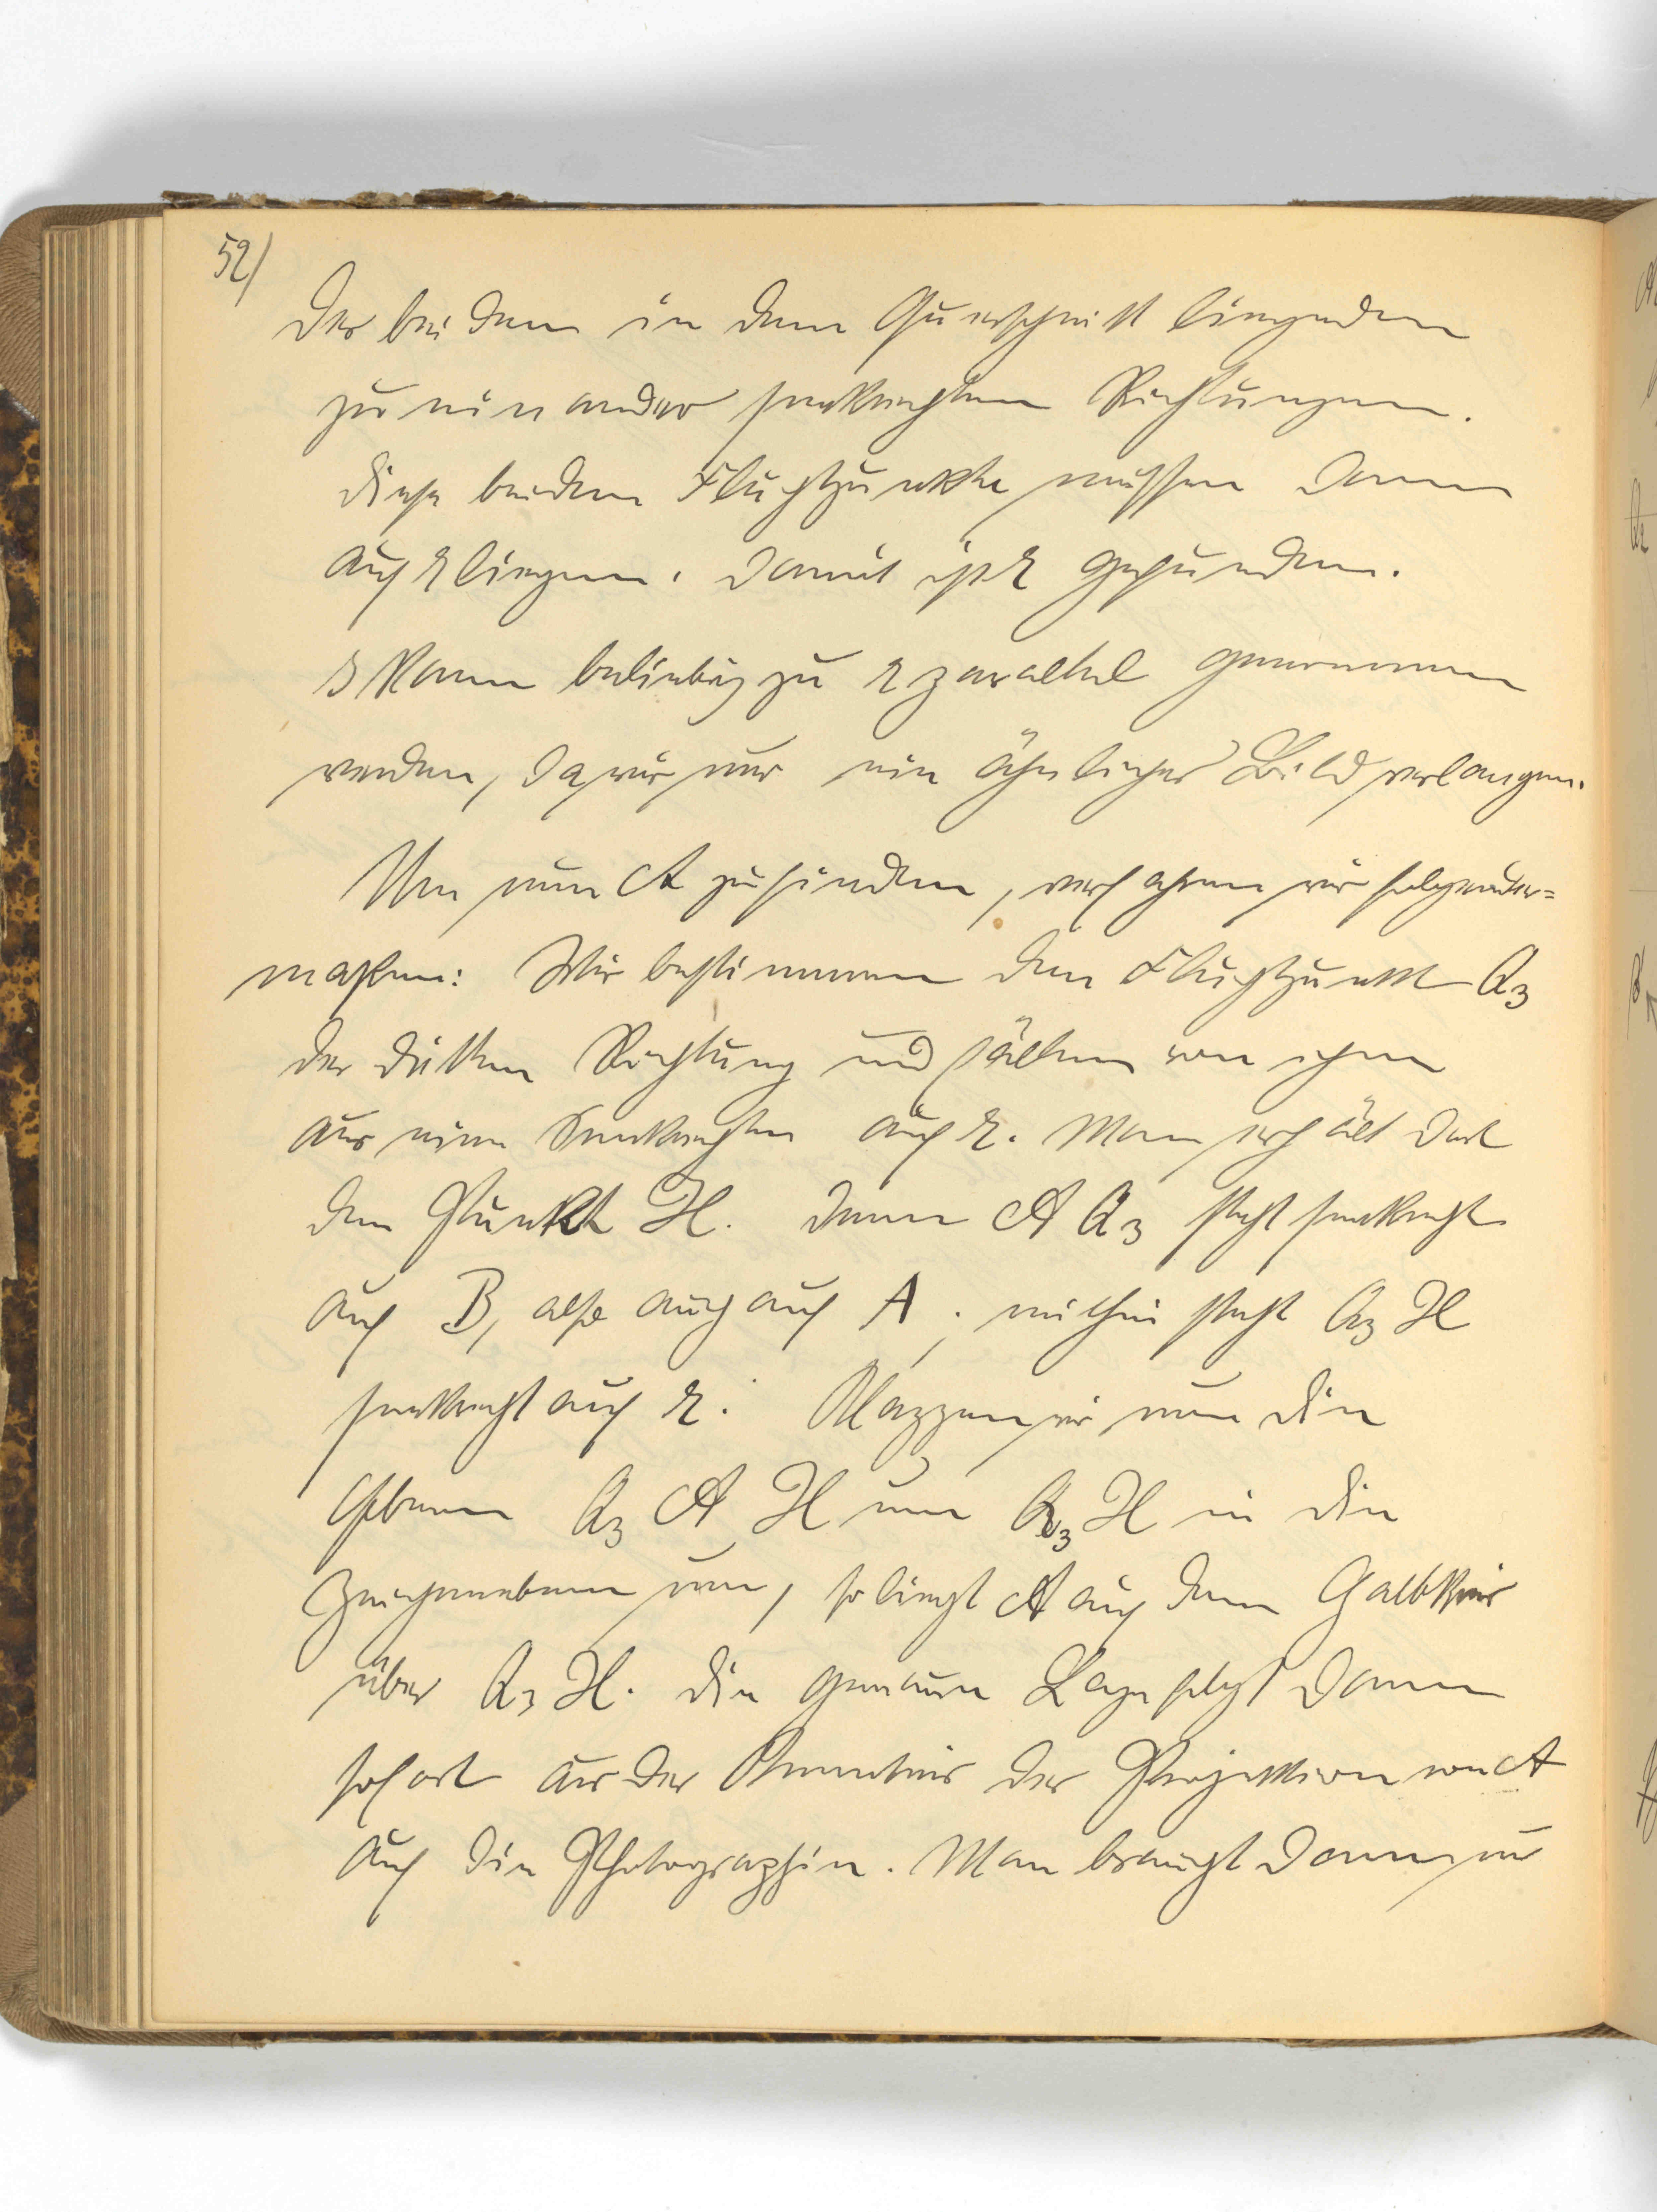 52)
der beiden in dem Querschnitt liegenden
zu einander senkrechten Richtungen.
Diese beiden Fluchtpunkte müssen dann
auf r liegen. Damit ist r gefunden.
s kann beliebig zu r parallel genommen
werden, da wir nur ein ähnliches Bild verlangen.
Um nun A zu finden, verfahren wir folgender=
maßen: Wir bestimmen den Fluchtpunkt Q3
der dritten Richtung und fällen von ihm
aus eine Senkrechte auf r. Man erhält dort
den Punkt H. Denn A Q3 steht senkrecht
auf B, also auch auf A; mithin steht Q3 H
senkrecht auf r. Klappen wir nun die
Ebene Q3 A H um Q3 H in die
Zeichenebene um, so liegt A auf dem Halbkreis
über Q3 H. Die genaue Lage folgt dann
sofort aus der Kenntnis der Projektion von A
auf die Photographie. Man braucht dann nur